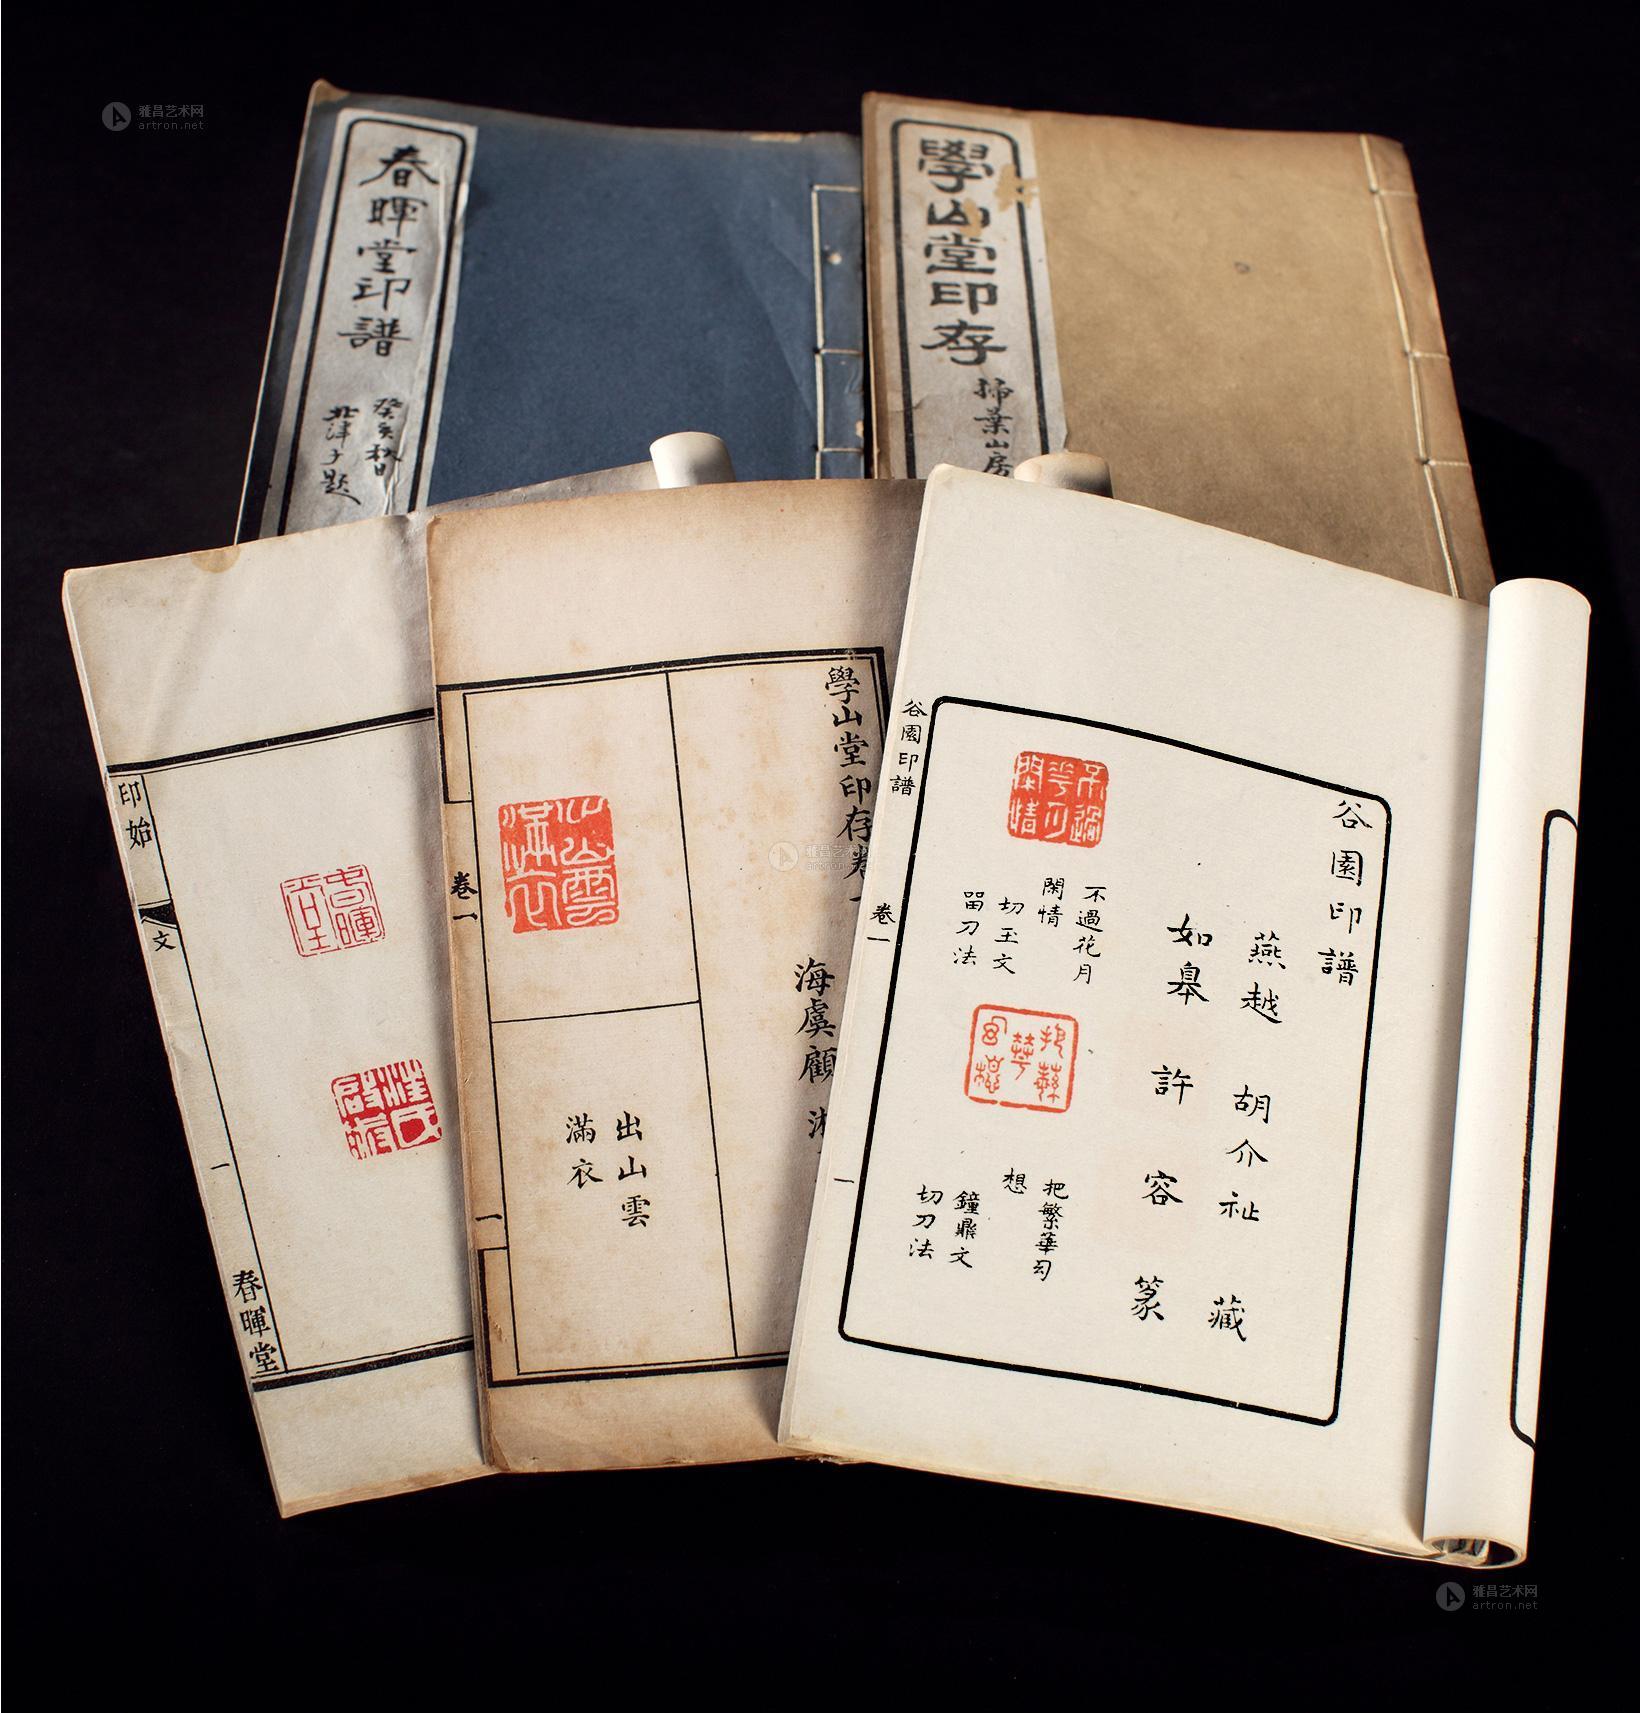 雅昌艺术网
artron.net
春暉堂印譜
癸亥秋日
北津子題
學山堂印存
掃葉山房
印始
文
一
春暉堂
春暉堂
學山堂印存卷一
海虞顧湘
出山雲
滿衣
卷一
一
谷園印譜
燕越 胡介祉 藏
如皋 許容 篆
不過花月
閑情
切玉文
留刀法
把繁華勾
想
鐘鼎文
切刀法
谷園印譜
卷一
一
雅昌艺术网
artron.net
雅昌艺术网
artron.net